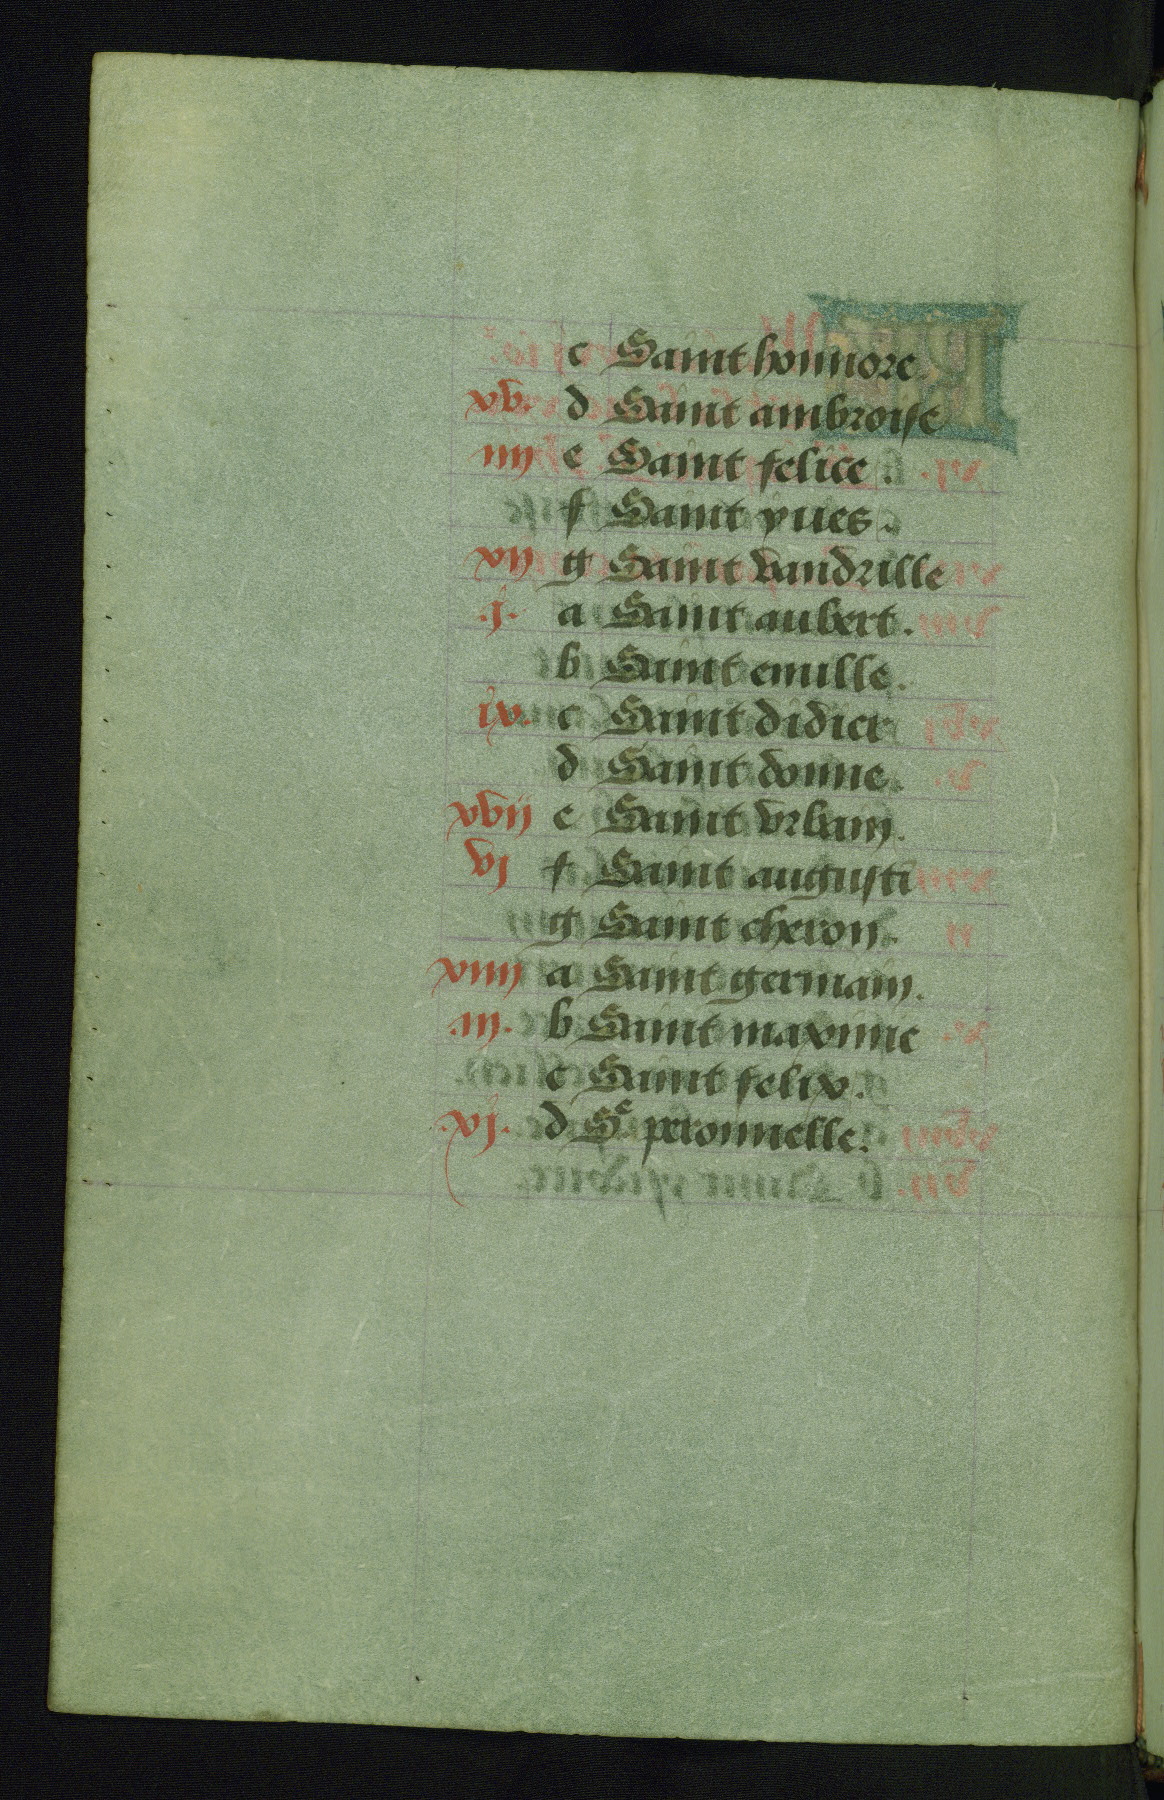 c Saint honnore.
xv. d Saint ambroise
iiij e Saint felice.
f Saint yues.
xij g Saint vandrille
.j. a Saint aubert.
b Saint emille.
ix. c Saint didier
d Saint donne.
xvij e Saint vrbain.
vj f Saint augusti
g Saint cheron.
xiiij a Saint germain.
.iij. b Saint maxime
c Saint felix.
.xj. d Se peronnelle.